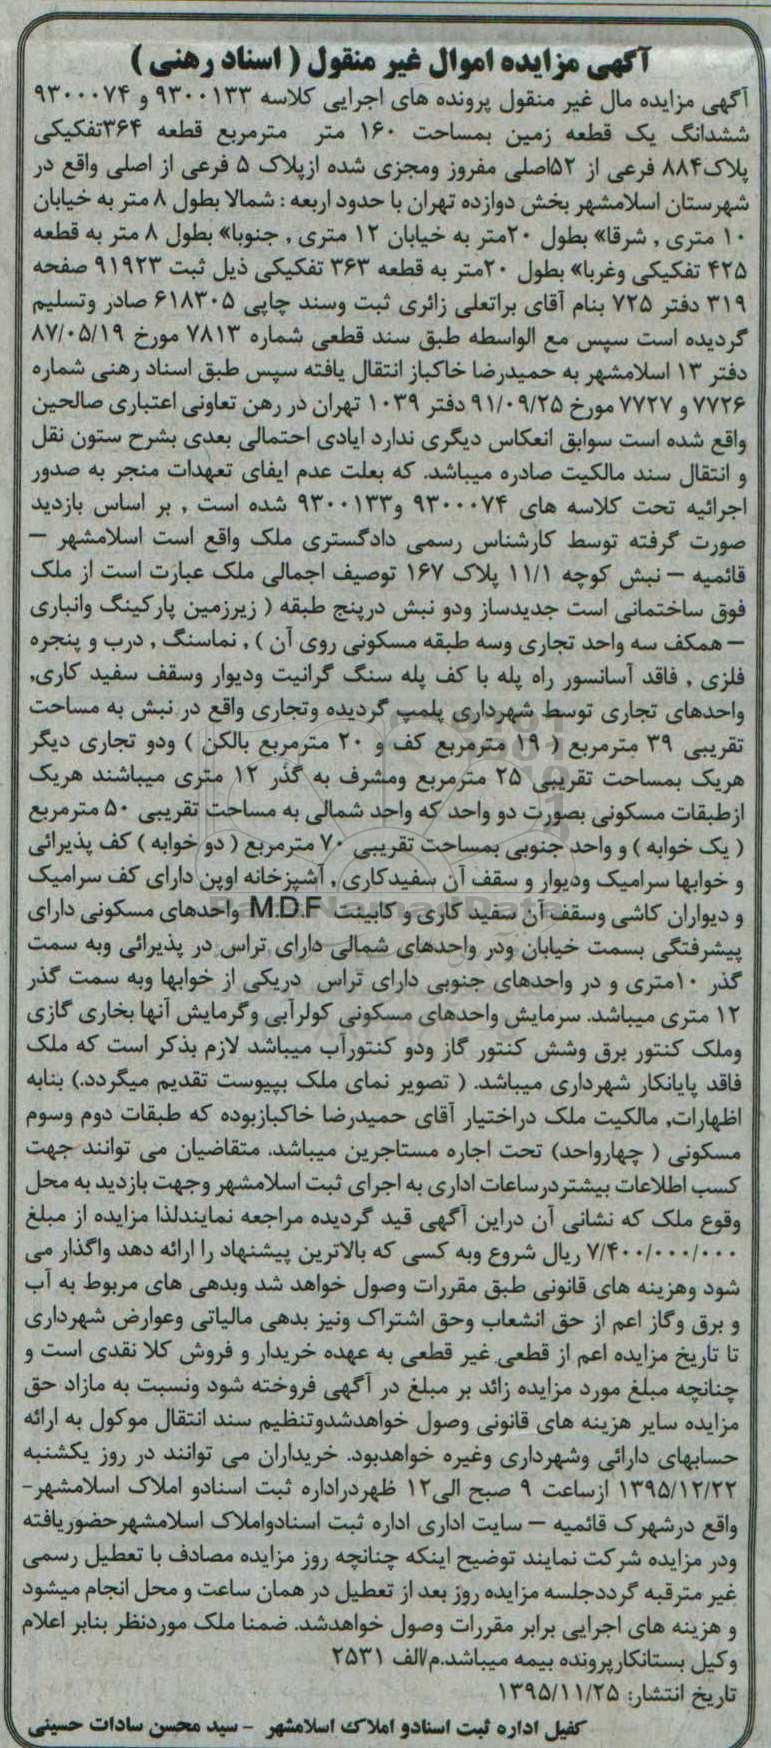 آگهی مزایده اموال غیر منقول ( اسناد رهنی )
آگهی مزایده مال غیر منقول پرونده های اجرایی کلاسه ۹۳۰۰۱۳۳ و ۹۳۰۰۰۷۴
ششدانگ یک قطعه زمین بمساحت ۱۶۰ متر مترمربع قطعه ۳۶۴تفکیکی
پلاک۸۸۴ فرعی از ۵۲اصلی مفروز ومجزی شده ازپلاک ۵ فرعی از اصلی واقع در
شهرستان اسلامشهر بخش دوازده تهران با حدود اربعه : شمالا بطول ۸ متر به خیابان
۱۰ متری , شرقا» بطول ۲۰متر به خیابان ۱۲ متری , جنوبا» بطول ۸ متر به قطعه
۴۲۵ تفکیکی وغربا» بطول ۲۰متر به قطعه ۳۶۳ تفکیکی ذیل ثبت ۹۱۹۲۳ صفحه
۳۱۹ دفتر ۷۲۵ بنام آقای براتعلی زائری ثبت وسند چاپی ۶۱۸۳۰۵ صادر وتسلیم
گردیده است سپس مع الواسطه طبق سند قطعی شماره ۷۸۱۳ مورخ ۸۷/۰۵/۱۹
دفتر ۱۳ اسلامشهر به حمیدرضا خاکباز انتقال یافته سپس طبق اسناد رهنی شماره
۷۷۲۶ و ۷۷۲۷ مورخ ۹۱/۰۹/۲۵ دفتر ۱۰۳۹ تهران در رهن تعاونی اعتباری صالحین
واقع شده است سوابق انعکاس دیگری ندارد ایادی احتمالی بعدی بشرح ستون نقل
و انتقال سند مالکیت صادره میباشد. که بعلت عدم ایفای تعهدات منجر به صدور
اجرائیه تحت کلاسه های ۹۳۰۰۰۷۴ و۹۳۰۰۱۳۳ شده است , بر اساس بازدید
صورت گرفته توسط کارشناس رسمی دادگستری ملک واقع است اسلامشهر –
قائمیه – نبش کوچه ۱۱/۱ پلاک ۱۶۷ توصیف اجمالی ملک عبارت است از ملک
فوق ساختمانی است جدیدساز ودو نبش درپنج طبقه ( زیرزمین پارکینگ وانباری
– همکف سه واحد تجاری وسه طبقه مسکونی روی آن ) , نماسنگ , درب و پنجره
فلزی , فاقد آسانسور راه پله با کف پله سنگ گرانیت ودیوار وسقف سفید کاری,
واحدهای تجاری توسط شهرداری پلمپ گردیده وتجاری واقع در نبش به مساحت
تقریبی ۳۹ مترمربع ( ۱۹ مترمربع کف و ۲۰ مترمربع بالکن ) ودو تجاری دیگر
هریک بمساحت تقریبی ۲۵ مترمربع ومشرف به گذر ۱۲ متری میباشند هریک
ازطبقات مسکونی بصورت دو واحد که واحد شمالی به مساحت تقریبی ۵۰ مترمربع
( یک خوابه ) و واحد جنوبی بمساحت تقریبی ۷۰ مترمربع ( دو خوابه ) کف پذیرائی
و خوابها سرامیک ودیوار و سقف آن سفیدکاری , آشپزخانه اوپن دارای کف سرامیک
و دیواران کاشی وسقف آن سفید کاری و کابینت M.D.F واحدهای مسکونی دارای
پیشرفتگی بسمت خیابان ودر واحدهای شمالی دارای تراس در پذیرائی وبه سمت
گذر ۱۰متری و در واحدهای جنوبی دارای تراس دریکی از خوابها وبه سمت گذر
۱۲ متری میباشد. سرمایش واحدهای مسکونی کولرآبی وگرمایش آنها بخاری گازی
وملک کنتور برق وشش کنتور گاز ودو کنتورآب میباشد لازم بذکر است که ملک
فاقد پایانکار شهرداری میباشد. ( تصویر نمای ملک بپیوست تقدیم میگردد.) بنابه
اظهارات, مالکیت ملک دراختیار آقای حمیدرضا خاکبازبوده که طبقات دوم وسوم
مسکونی ( چهارواحد) تحت اجاره مستاجرین میباشد. متقاضیان می توانند جهت
کسب اطلاعات بیشتردرساعات اداری به اجرای ثبت اسلامشهر وجهت بازدید به محل
وقوع ملک که نشانی آن دراین آگهی قید گردیده مراجعه نمایندلذا مزایده از مبلغ
۷/۴۰۰/۰۰۰/۰۰۰ ریال شروع وبه کسی که بالاترین پیشنهاد را ارائه دهد واگذار می
شود وهزینه های قانونی طبق مقررات وصول خواهد شد وبدهی های مربوط به آب
و برق وگاز اعم از حق انشعاب وحق اشتراک ونیز بدهی مالیاتی وعوارض شهرداری
تا تاریخ مزایده اعم از قطعی غیر قطعی به عهده خریدار و فروش کلا نقدی است و
چنانچه مبلغ مورد مزایده زائد بر مبلغ در آگهی فروخته شود ونسبت به مازاد حق
مزایده سایر هزینه های قانونی وصول خواهدشدوتنظیم سند انتقال موکول به ارائه
حسابهای دارائی وشهرداری وغیره خواهدبود. خریداران می توانند در روز یکشنبه
۱۳۹۵/۱۲/۲۲ ازساعت ۹ صبح الی۱۲ ظهردراداره ثبت اسنادو املاک اسلامشهر-
واقع درشهرک قائمیه – سایت اداری اداره ثبت اسنادواملاک اسلامشهرحضوریافته
ودر مزایده شرکت نمایند توضیح اینکه چنانچه روز مزایده مصادف با تعطیل رسمی
غیر مترقبه گرددجلسه مزایده روز بعد از تعطیل در همان ساعت و محل انجام میشود
و هزینه های اجرایی برابر مقررات وصول خواهدشد. ضمنا ملک موردنظر بنابر اعلام
وکیل بستانکارپرونده بیمه میباشد.م/الف ۲۵۳۱
تاریخ انتشار: ۱۳۹۵/۱۱/۲۵
کفیل اداره ثبت اسنادو املاک اسلامشهر - سید محسن سادات حسینی